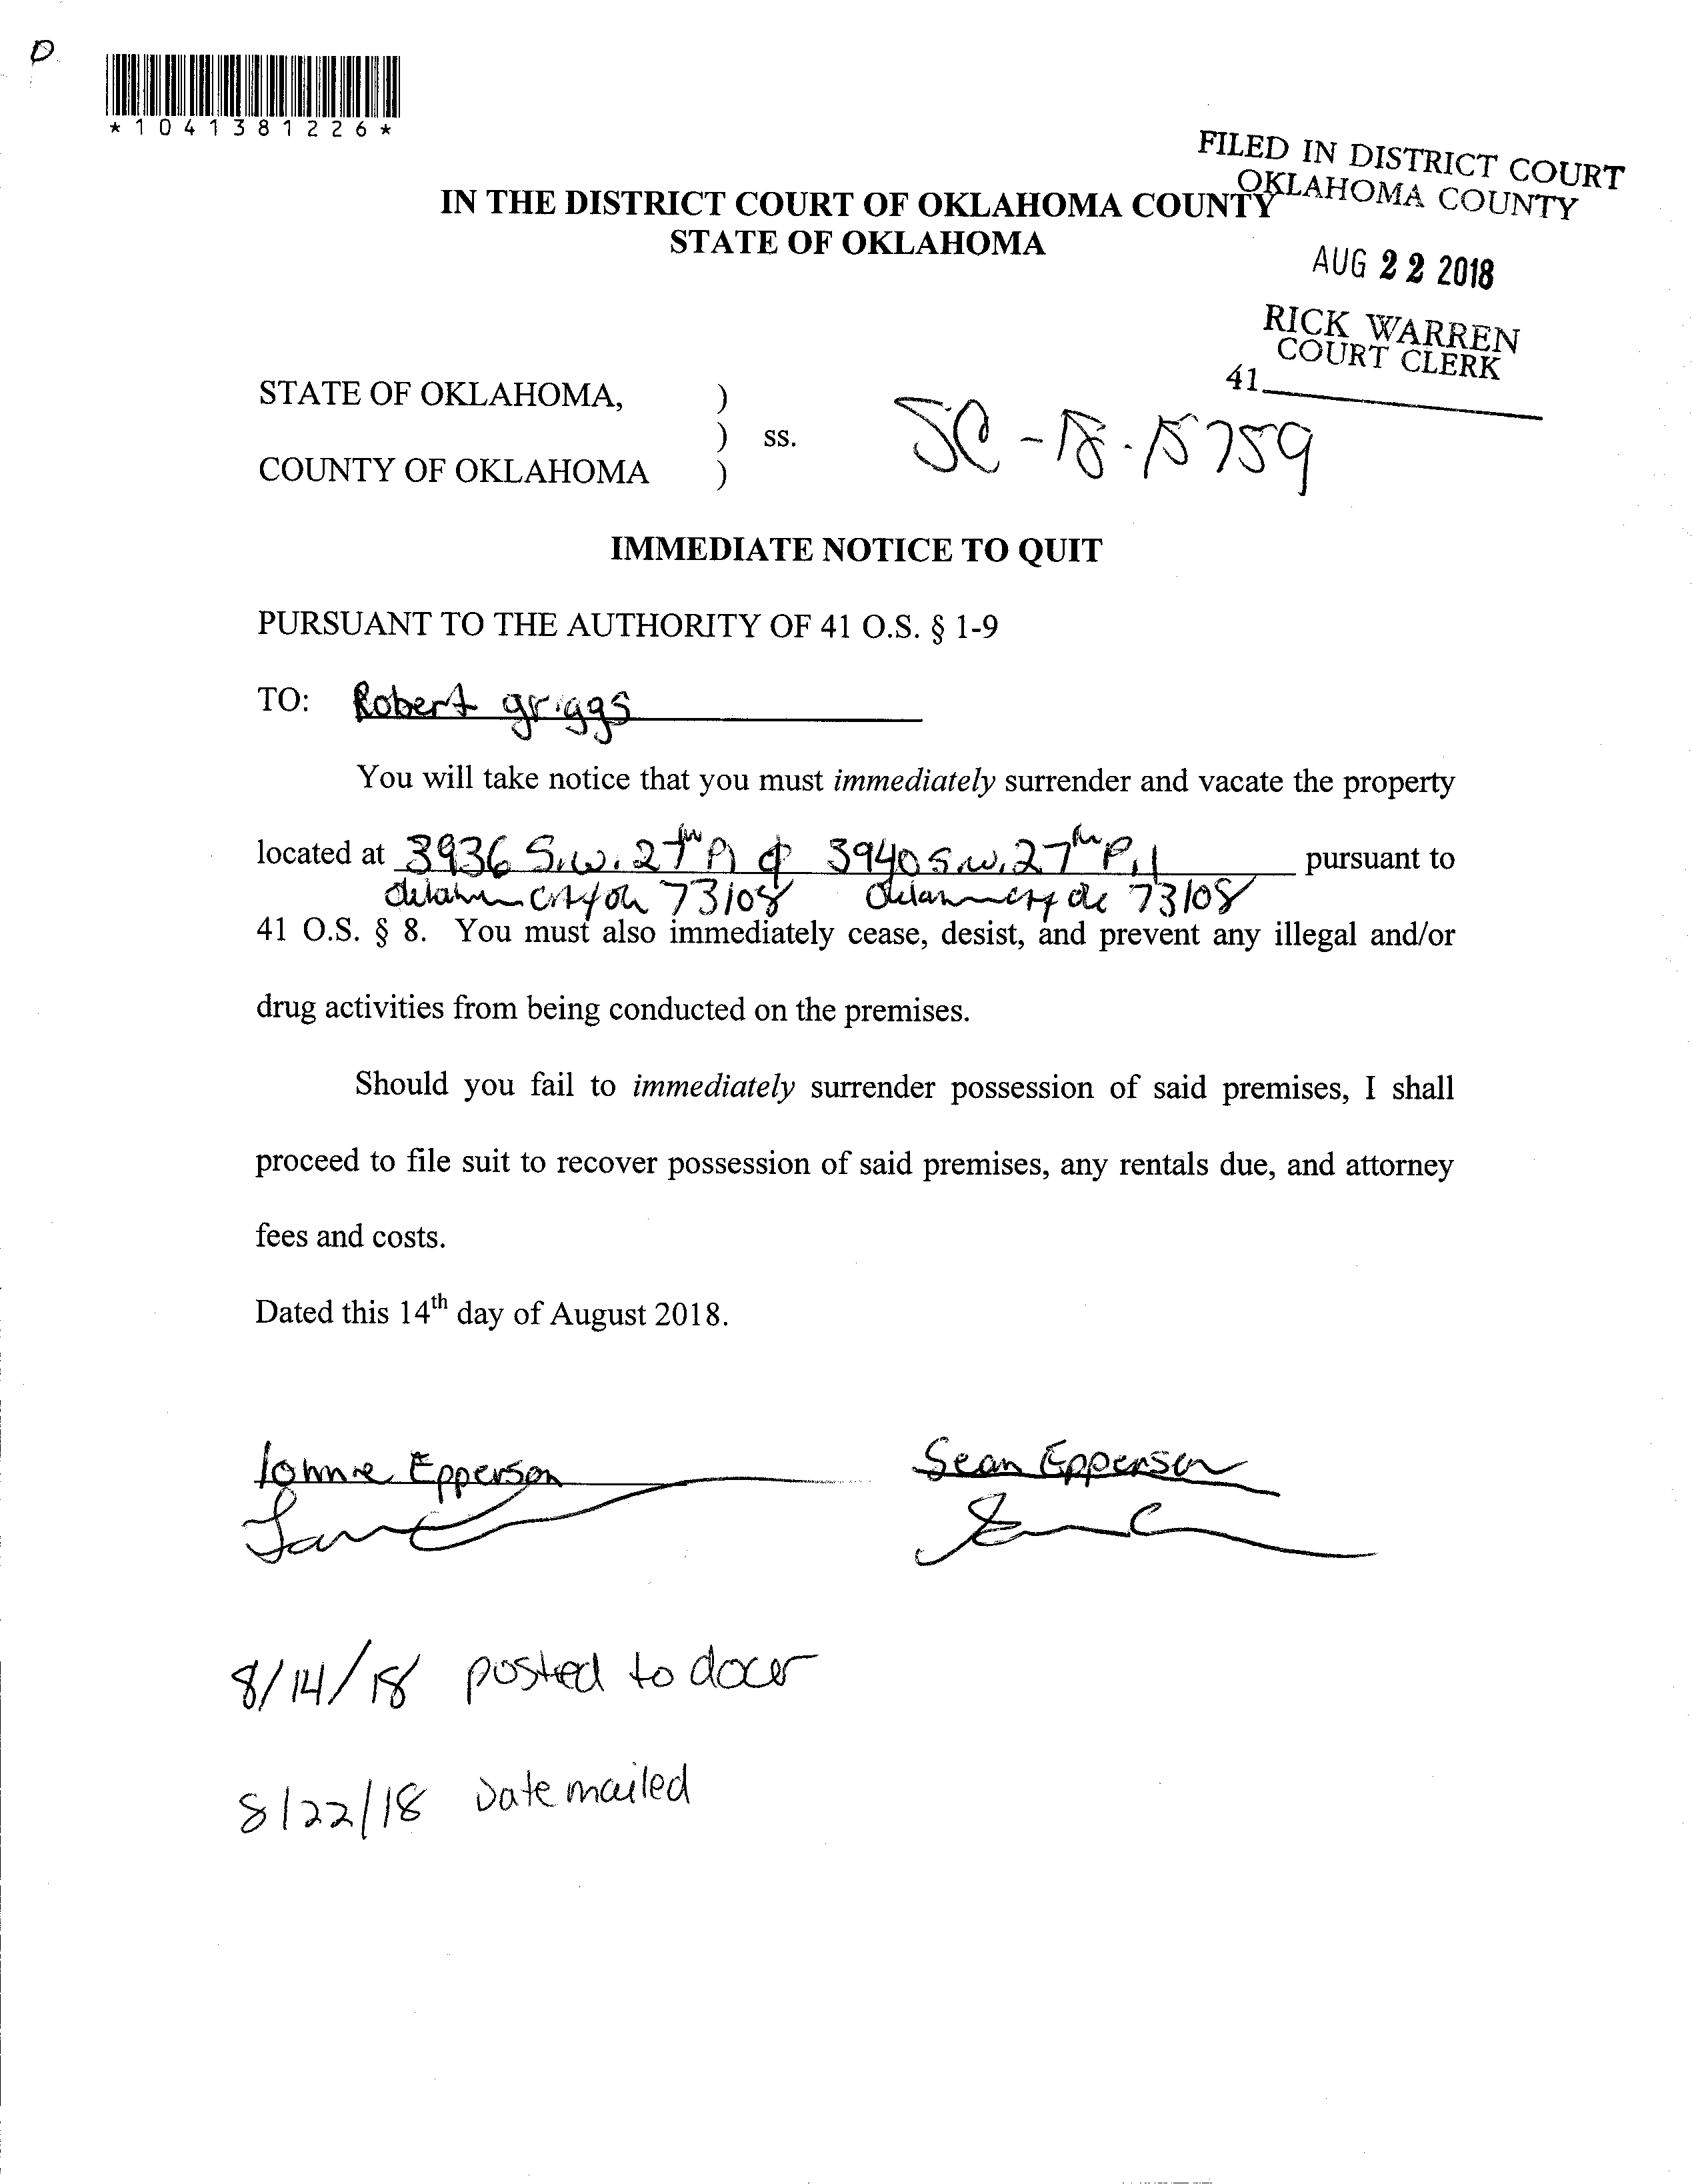 D
*1041381226*
FILED IN DISTRICT COURT
OKLAHOMA COUNTY
IN THE DISTRICT COURT OF OKLAHOMA COUNTY
STATE OF OKLAHOMA
AUG 22 2018
RICK WARREN
COURT CLERK
41
STATE OF OKLAHOMA, )
) ss.
COUNTY OF OKLAHOMA )
SC-18-15759
IMMEDIATE NOTICE TO QUIT
PURSUANT TO THE AUTHORITY OF 41 O.S. § 1-9
TO: Robert griggs
You will take notice that you must immediately surrender and vacate the property
located at 3936 S.w. 27th Pl & 3940 S.w. 27th Pl pursuant to
city 73108 73108
41 O.S. § 8. You must also immediately cease, desist, and prevent any illegal and/or
drug activities from being conducted on the premises.
Should you fail to immediately surrender possession of said premises, I shall
proceed to file suit to recover possession of said premises, any rentals due, and attorney
fees and costs.
Dated this 14th day of August 2018.
Epperson Sean Epperson
8/14/18 posted to door
8/22/18 Date mailed